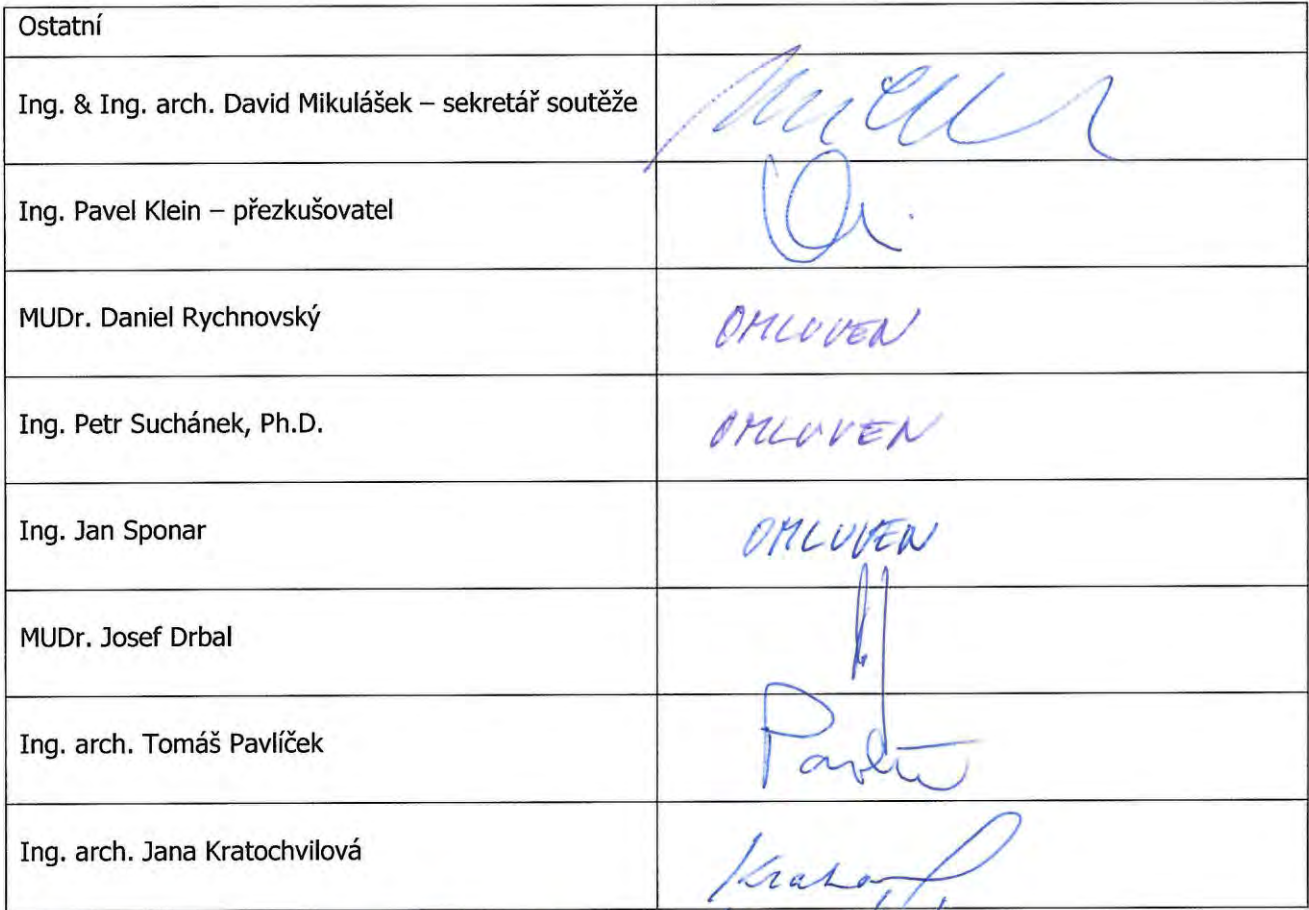 Ostatní
Ing. & Ing. arch. David Mikulášek – sekretář soutěže
Ing. Pavel Klein – přezkušovatel
MUDr. Daniel Rychnovský OMLUVEN
Ing. Petr Suchánek, Ph.D. OMLUVEN
Ing. Jan Sponar OMLUVEN
MUDr. Josef Drbal
Ing. arch. Tomáš Pavlíček
Ing. arch. Jana Kratochvilová